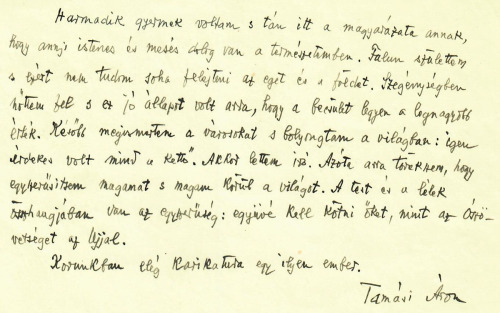 Harmadik gyermek voltam s tán itt a magyarázata annak,
hogy annyi istenes és mesés dolog van a természetemben. Falun születtem
s ezért nem tudom soha felejteni az eget és a földet. Szegénységben
nőttem fel s ez jó állapot volt arra, hogy a becsület legyen a legnagyobb
érték. Később megismertem a városokat s bolyongtam a világban: igen
érdekes volt mind a kettő. Akkor lettem író. Azóta arra törekszem, hogy
egyszerüsitsem magamat s magam körül a világot. A test és a lélek
összhangjában van az egyszerüség: együvé kell kötni őket, mint az Ószö-
vetséget az Ujjal.
Korunkban elég karikatura egy ilyen ember.
Tamási Áron